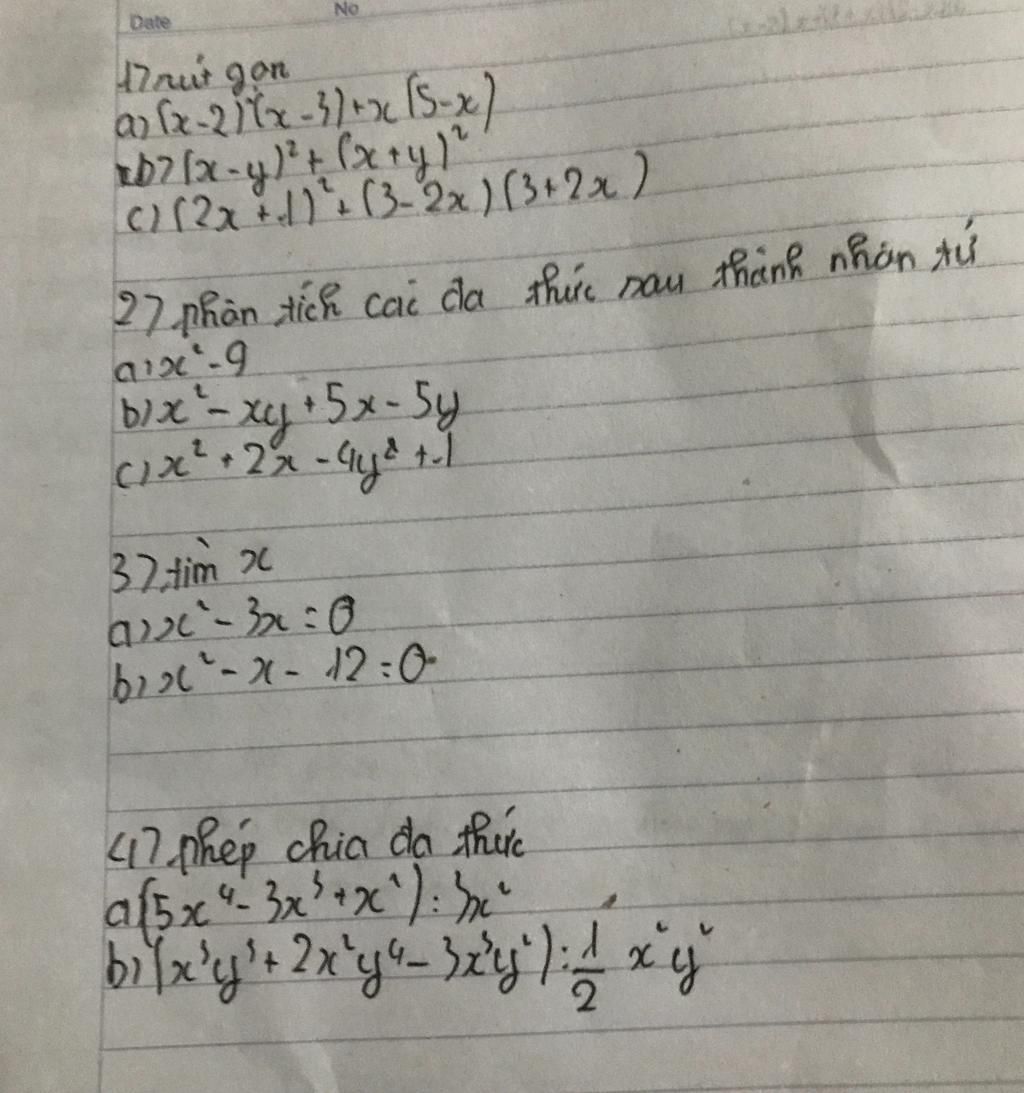 Date No
1) rút gọn
a) (x-2)(x-3)+x(5-x)
b) (x-y)²+(x+y)²
c) (2x+1)²+(3-2x)(3+2x)
2) phân tích các đa thức sau thành nhân tử
a) x²-9
b) x²-xy+5x-5y
c) x²+2x-4y²+1
3) tìm x
a) x²-3x=0
b) x²-x-12=0
4) phép chia đa thức
a (5x⁴-3x³+x²):3x²
b) (x³y³+2x²y⁴-3x³y²):1/2 x²y²